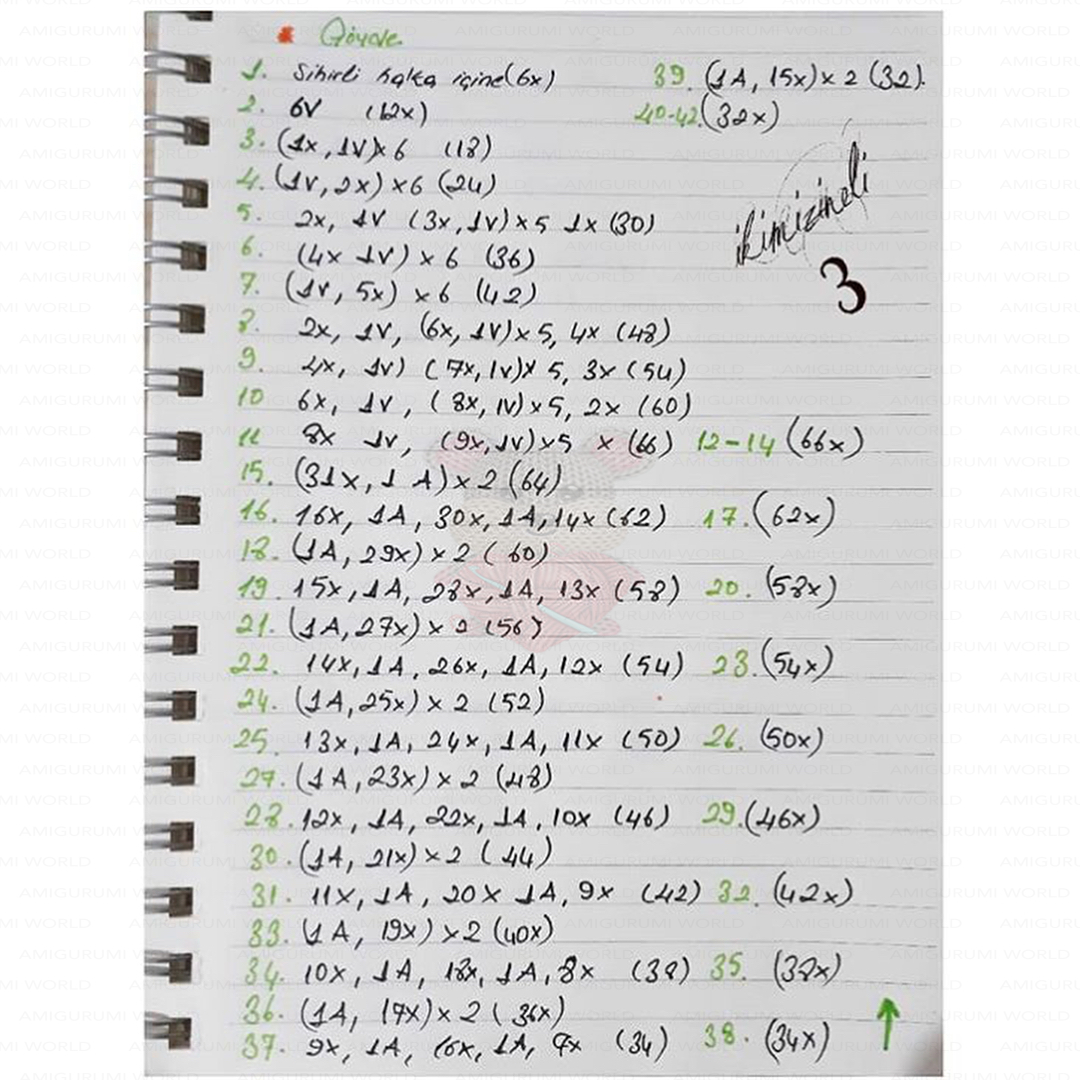 * Gövde
1. Sihirli halka içine(6x)
2. 6V (12x)
3. (1x, 1V)x6 (18)
4. (1V, 2x) x6 (24)
5. 2x, 1V (3x, 1V) x5 1x (30)
6. (4x 1V) x 6 (36)
7. (1V, 5x) x6 (42)
8. 2x, 1V, (6x, 1V)x5, 4x (48)
9. 4x, 1V) (7x, 1V)x 5, 3x (54)
10 6x, 1V, (8x, 1V)x5, 2x (60)
11 8x 1V, (9x, 1V)x5 x (66) 12-14 (66x)
15. (31x, 1 A) x 2 (64)
16. 16x, 1A, 30x, 1A, 14x (62) 17. (62x)
18. (1A, 29x) x 2 (60)
19. 15x, 1A, 28x, 1A, 13x (58) 20. (58x)
21. (1A, 27x) x 2 (56)
22. 14x, 1A, 26x, 1A, 12x (54) 23. (54x)
24. (1A, 25x) x 2 (52)
25. 13x, 1A, 24x, 1A, 11x (50) 26. (50x)
27. (1A, 23x) x 2 (48)
28. 12x, 1A, 22x, 1A, 10x (46) 29. (46x)
30. (1A, 21x) x 2 (44)
31. 11x, 1A, 20x 1A, 9x (42) 32. (42x)
33. (1A, 19x) x2 (40x)
34. 10x, 1A, 18x, 1A, 8x (38) 35. (38x)
36. (1A, 17x) x 2 (36x)
37. 9x, 1A, 16x, 1A, 7x (34) 38. (34x)
39. (1A, 15x) x 2 (32).
40-42. (32x)
3
AMIGURUMI WORLD